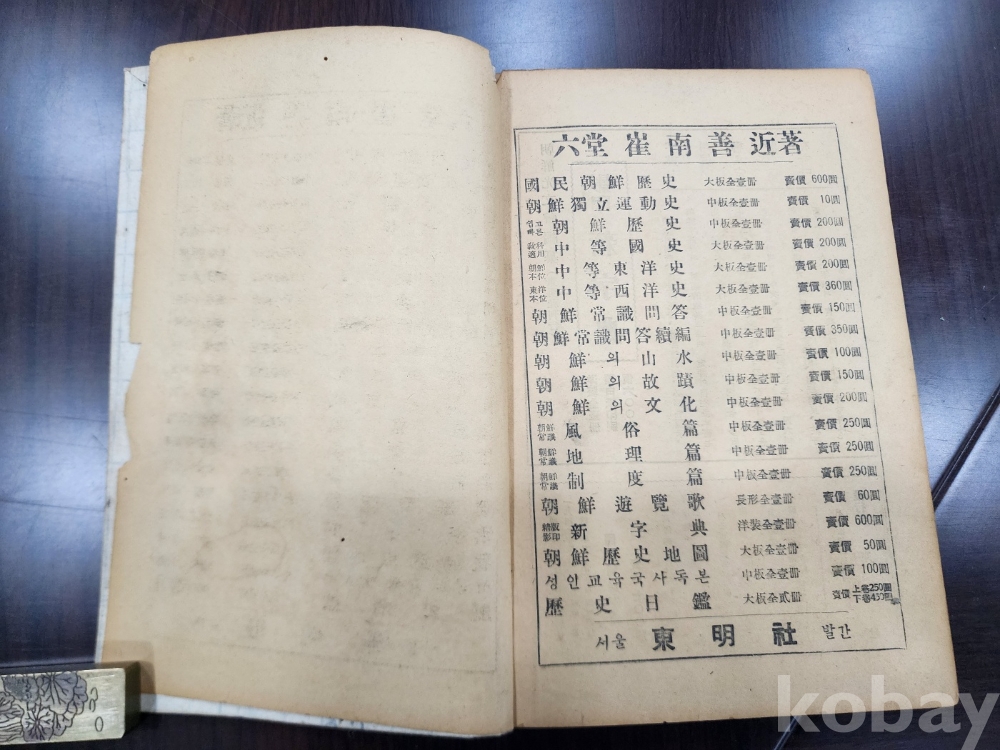 六堂 崔南善 近著
國民朝鮮歷史 大板全壹冊 賣價 600圓
朝鮮獨立運動史 中板全壹冊 賣價 10圓
쉽고 빠른 朝鮮歷史 中板全壹冊 賣價 200圓
敎科適用 中等國史 大板全壹冊 賣價 200圓
朝鮮本位 中等東洋史 大板全壹冊 賣價 200圓
東洋本位 中等西洋史 大板全壹冊 賣價 360圓
朝鮮常識問答 中板全壹冊 賣價 150圓
朝鮮常識問答續編 中板全壹冊 賣價 350圓
朝鮮의山水 中板全壹冊 賣價 100圓
朝鮮의故蹟 中板全壹冊 賣價 150圓
朝鮮의文化 中板全壹冊 賣價 200圓
朝鮮常識 風俗篇 中板全壹冊 賣價 250圓
朝鮮常識 地理篇 中板全壹冊 賣價 250圓
朝鮮常識 制度篇 中板全壹冊 賣價 250圓
朝鮮遊覽歌 長形全壹冊 賣價 60圓
精版影印 新字典 洋裝全壹冊 賣價 600圓
朝鮮歷史地圖 大板全壹冊 賣價 50圓
성인교육국사독본 中板全壹冊 賣價 100圓
歷史日鑑 大板全貳冊 賣價 上卷250圓 下卷450圓
서울 東明社 발간
kobay